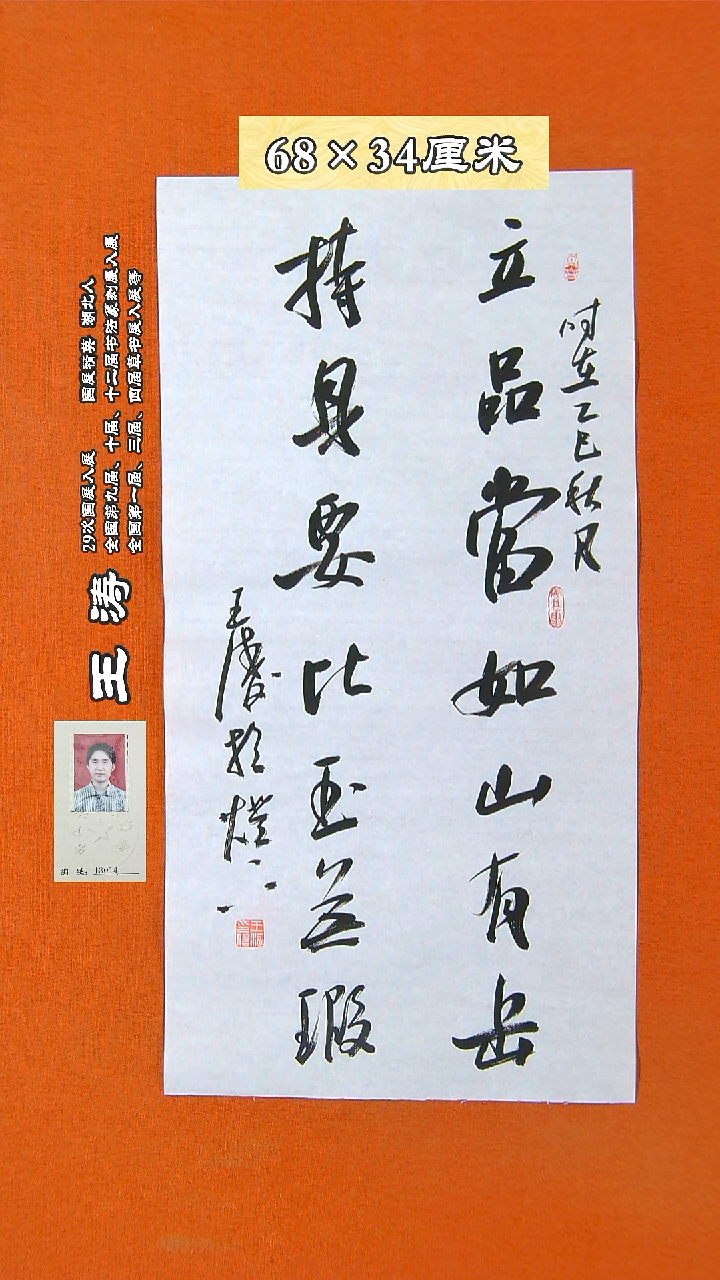 68×34厘米
时在乙巳秋月
立品當如山有岳
持身要比玉無瑕
王濤於燈下
王涛
29次国展入展 国展精英 湖北人
全国第九届、十届、十二届书法篆刻展入展
全国第一届、三届、四届草书展入展等